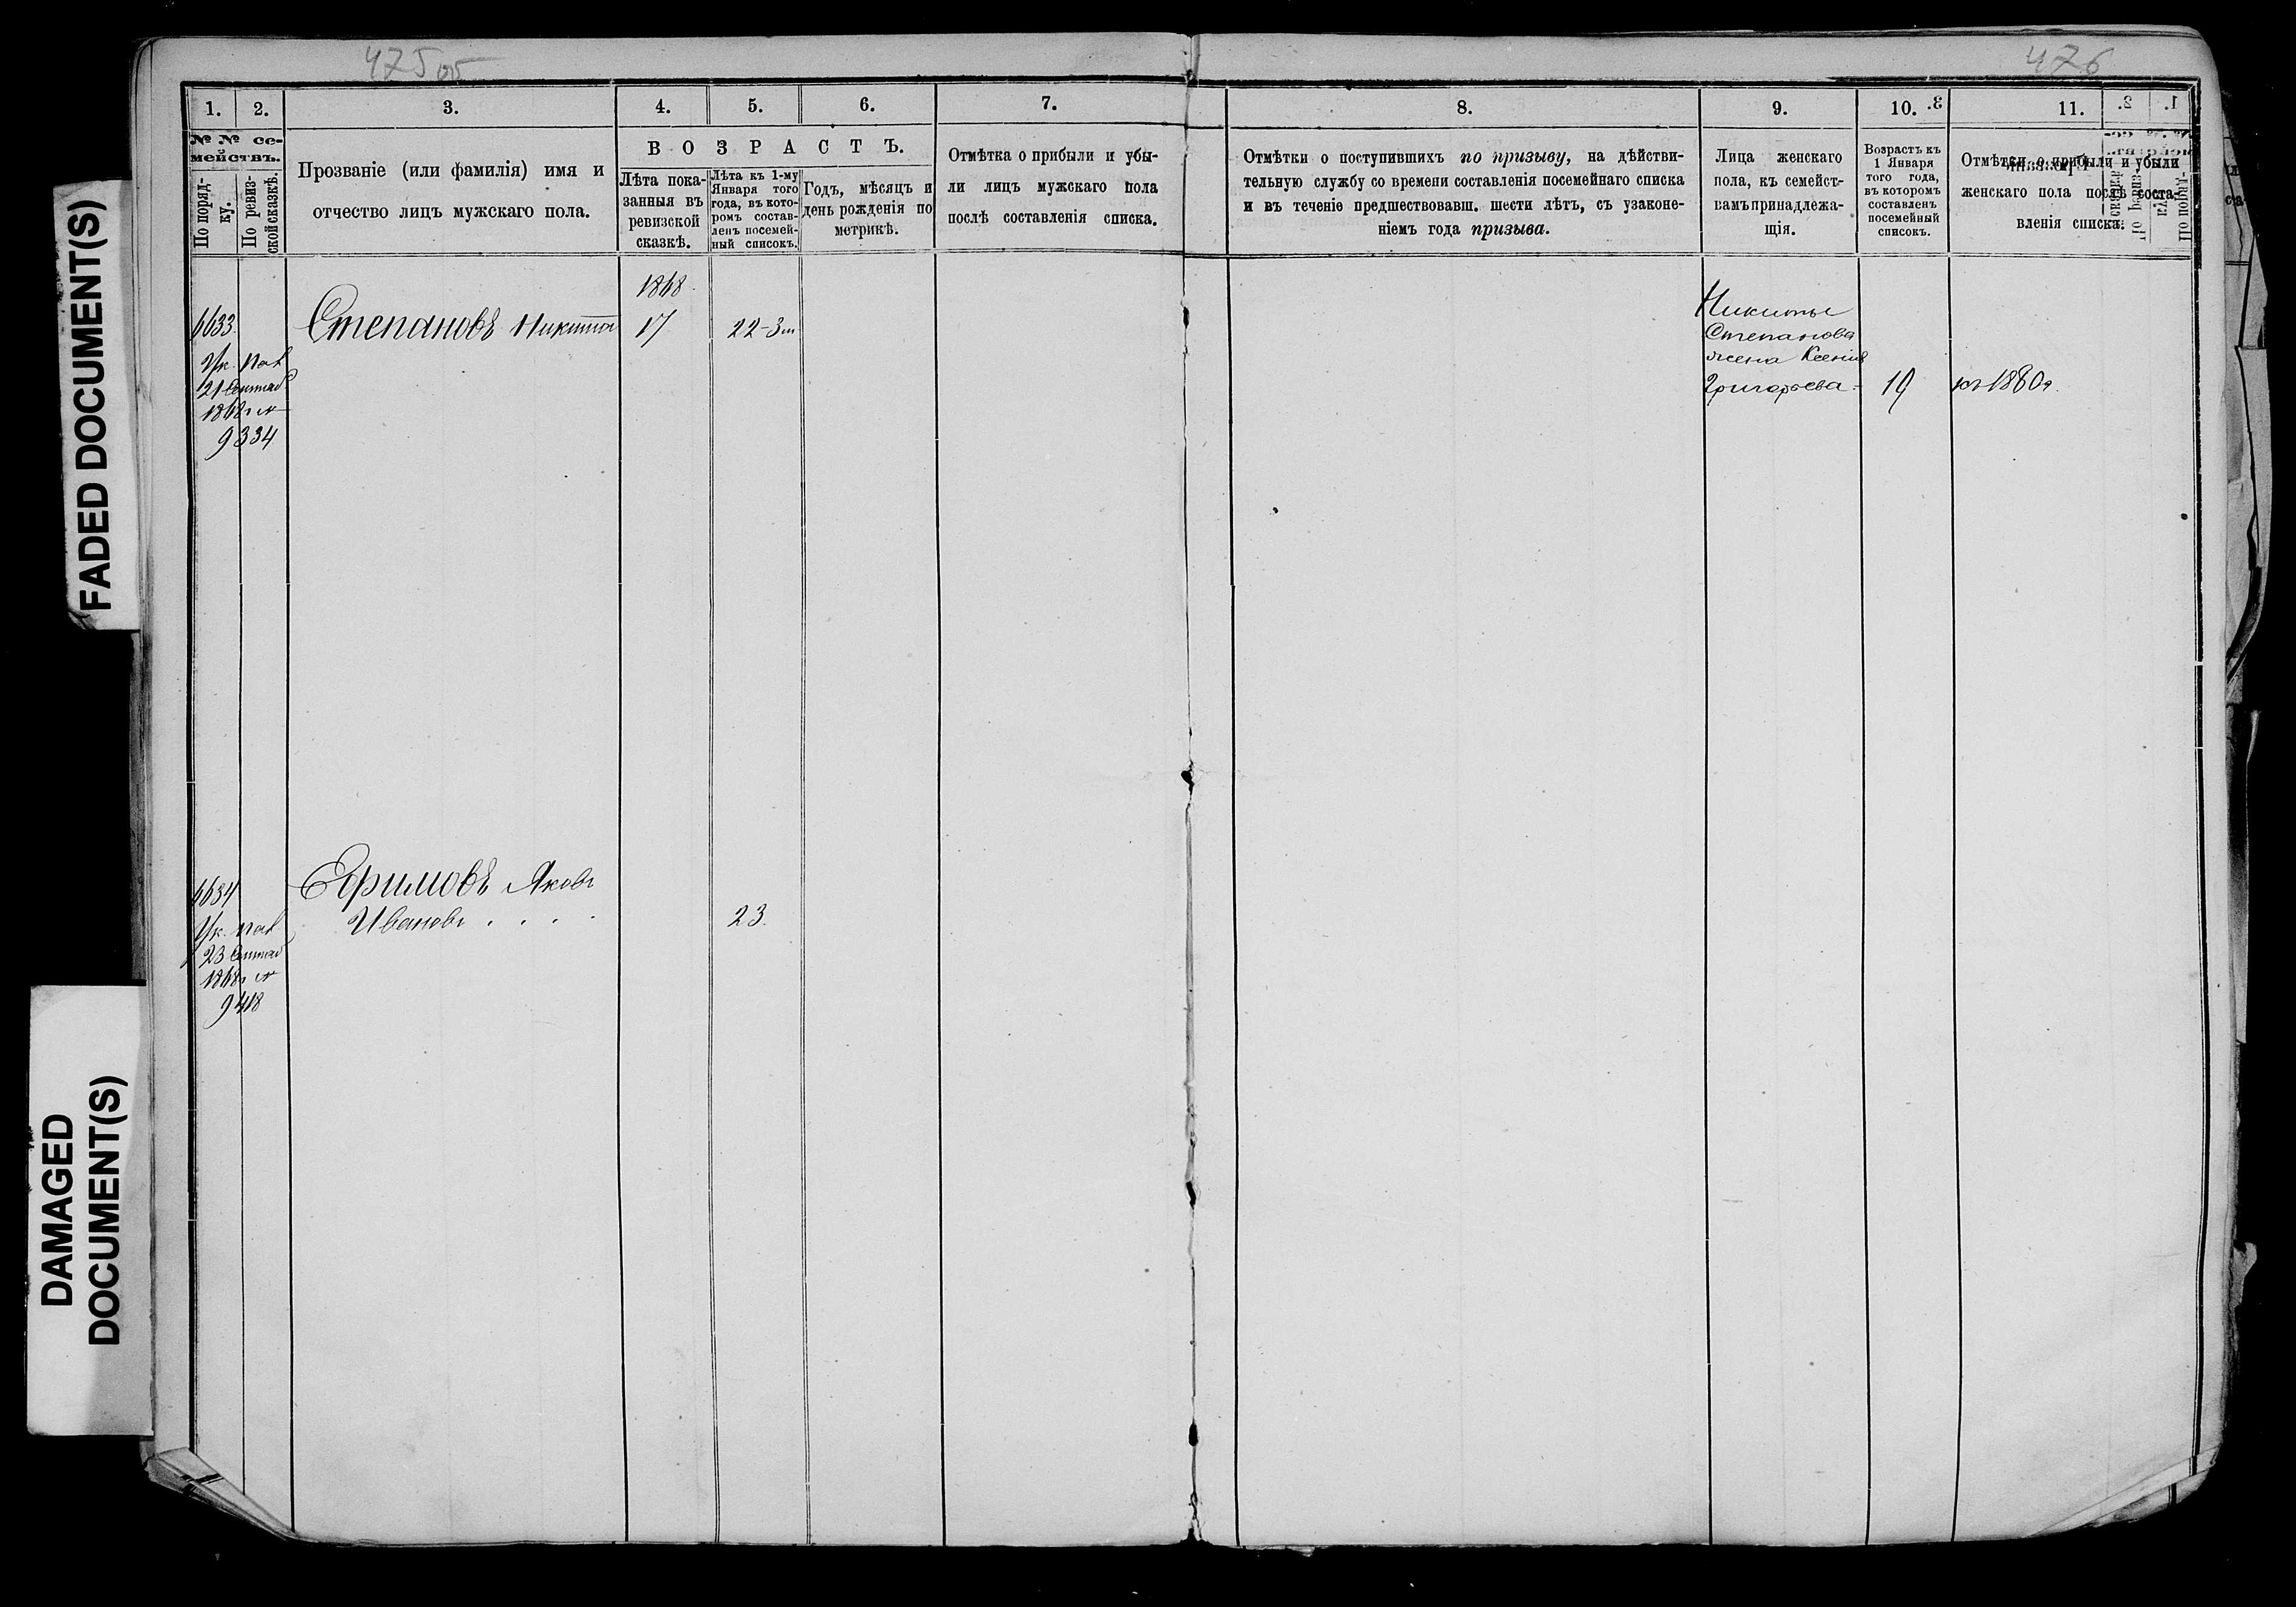 FADED DOCUMENT(S)
DAMAGED
DOCUMENT(S)
475 об
1.
2.
3.
4.
5.
6.
7.
№ № се-
мействъ.
По поряд-
ку.
По ревиз-
ской сказкѣ.
Прозваніе (или фамилія) имя и
отчество лицъ мужскаго пола.
ВОЗРАСТЪ.
Лѣта пока-
занныя въ
ревизской
сказкѣ.
Лѣта къ 1-му
Января того
года, въ кото-
ромъ состав-
ленъ посемей-
ный списокъ.
Годъ, мѣсяцъ и
день рожденія по
метрикѣ.
Отмѣтка о прибыли и убы-
ли лицъ мужскаго пола
послѣ составленія списка.
1868.
6633.
Степановъ Никита
17
22-3м
Ук. Пал
21
1868г №
9334
6634
Ефимовъ Яковъ
Ивановъ . . . .
23.
Ук. Пал
23
1868г №
9418
476
8.
9.
10.
11.
Отмѣтки о поступившихъ по призыву, на дѣйстви-
тельную службу со времени составленія посемейнаго списка
и въ теченіе предшествовавш. шести лѣтъ, съ узаконе-
ніемъ года призыва.
Лица женскаго
пола, къ семейст-
вамъ принадлежа-
щія.
Возрастъ къ
1 Января
того года,
въ которомъ
составленъ
посемейный
списокъ.
Отмѣтки о прибыли и убыли
женскаго пола послѣ соста-
вленія списка.
Никиты
Степанова
жена Ксенія
Григорьева-
19
къ 1880г.